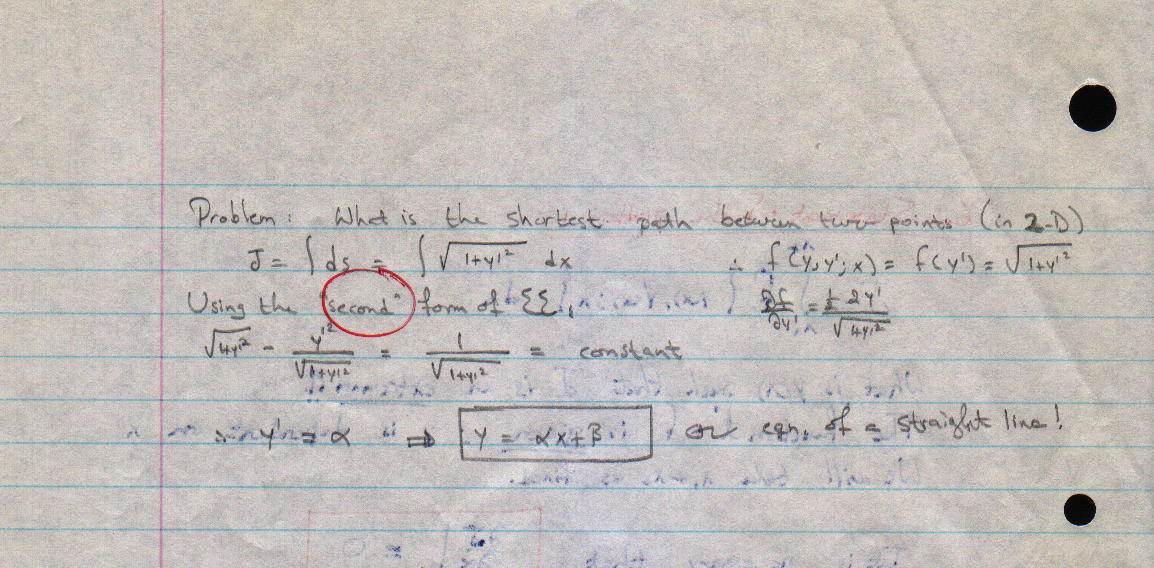 Problem: What is the shortest path between two points (in 2-D)
J = ∫ ds = ∫ √(1+y'²) dx ∴ f(y,y';x) = f(y') = √(1+y'²)
Using the "second" form of ξξ, ∂f/∂y' = ½ 2y' / √(1+y'²)
√(1+y'²) - y'²/√(1+y'²) = 1/√(1+y'²) = constant
∴ y' = α ⇒ y = αx+β or eqn. of a straight line!